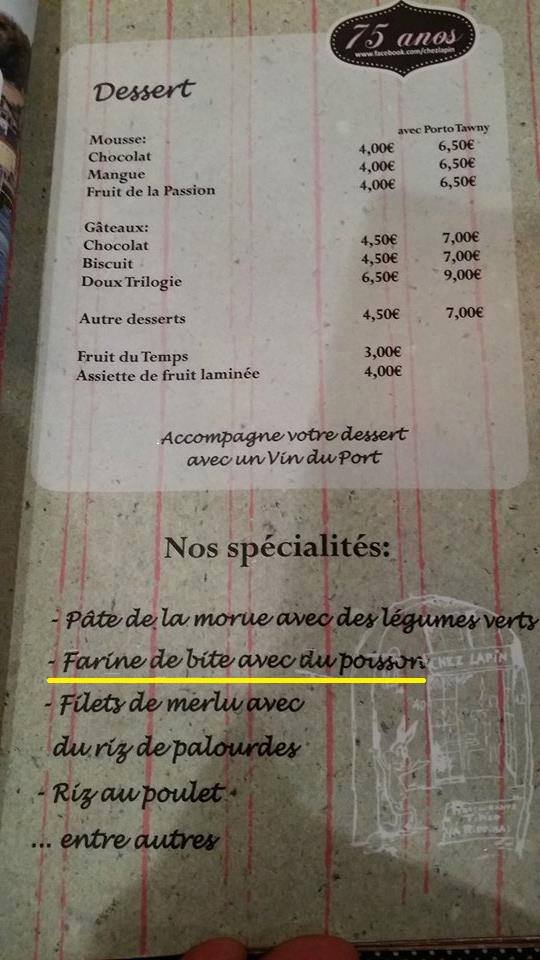 75 anos
www.facebook.com/chezlapin
Dessert
avec Porto Tawny
Mousse:
Chocolat 4,00€ 6,50€
Mangue 4,00€ 6,50€
Fruit de la Passion 4,00€ 6,50€
Gâteaux:
Chocolat 4,50€ 7,00€
Biscuit 4,50€ 7,00€
Doux Trilogie 6,50€ 9,00€
Autre desserts 4,50€ 7,00€
Fruit du Temps 3,00€
Assiette de fruit laminée 4,00€
Accompagne votre dessert
avec un Vin du Port
Nos spécialités:
- Pâte de la morue avec des légumes verts
- Farine de bite avec du poisson
- Filets de merlu avec
du riz de palourdes
- Riz au poulet
... entre autres
CHEZ LAPIN